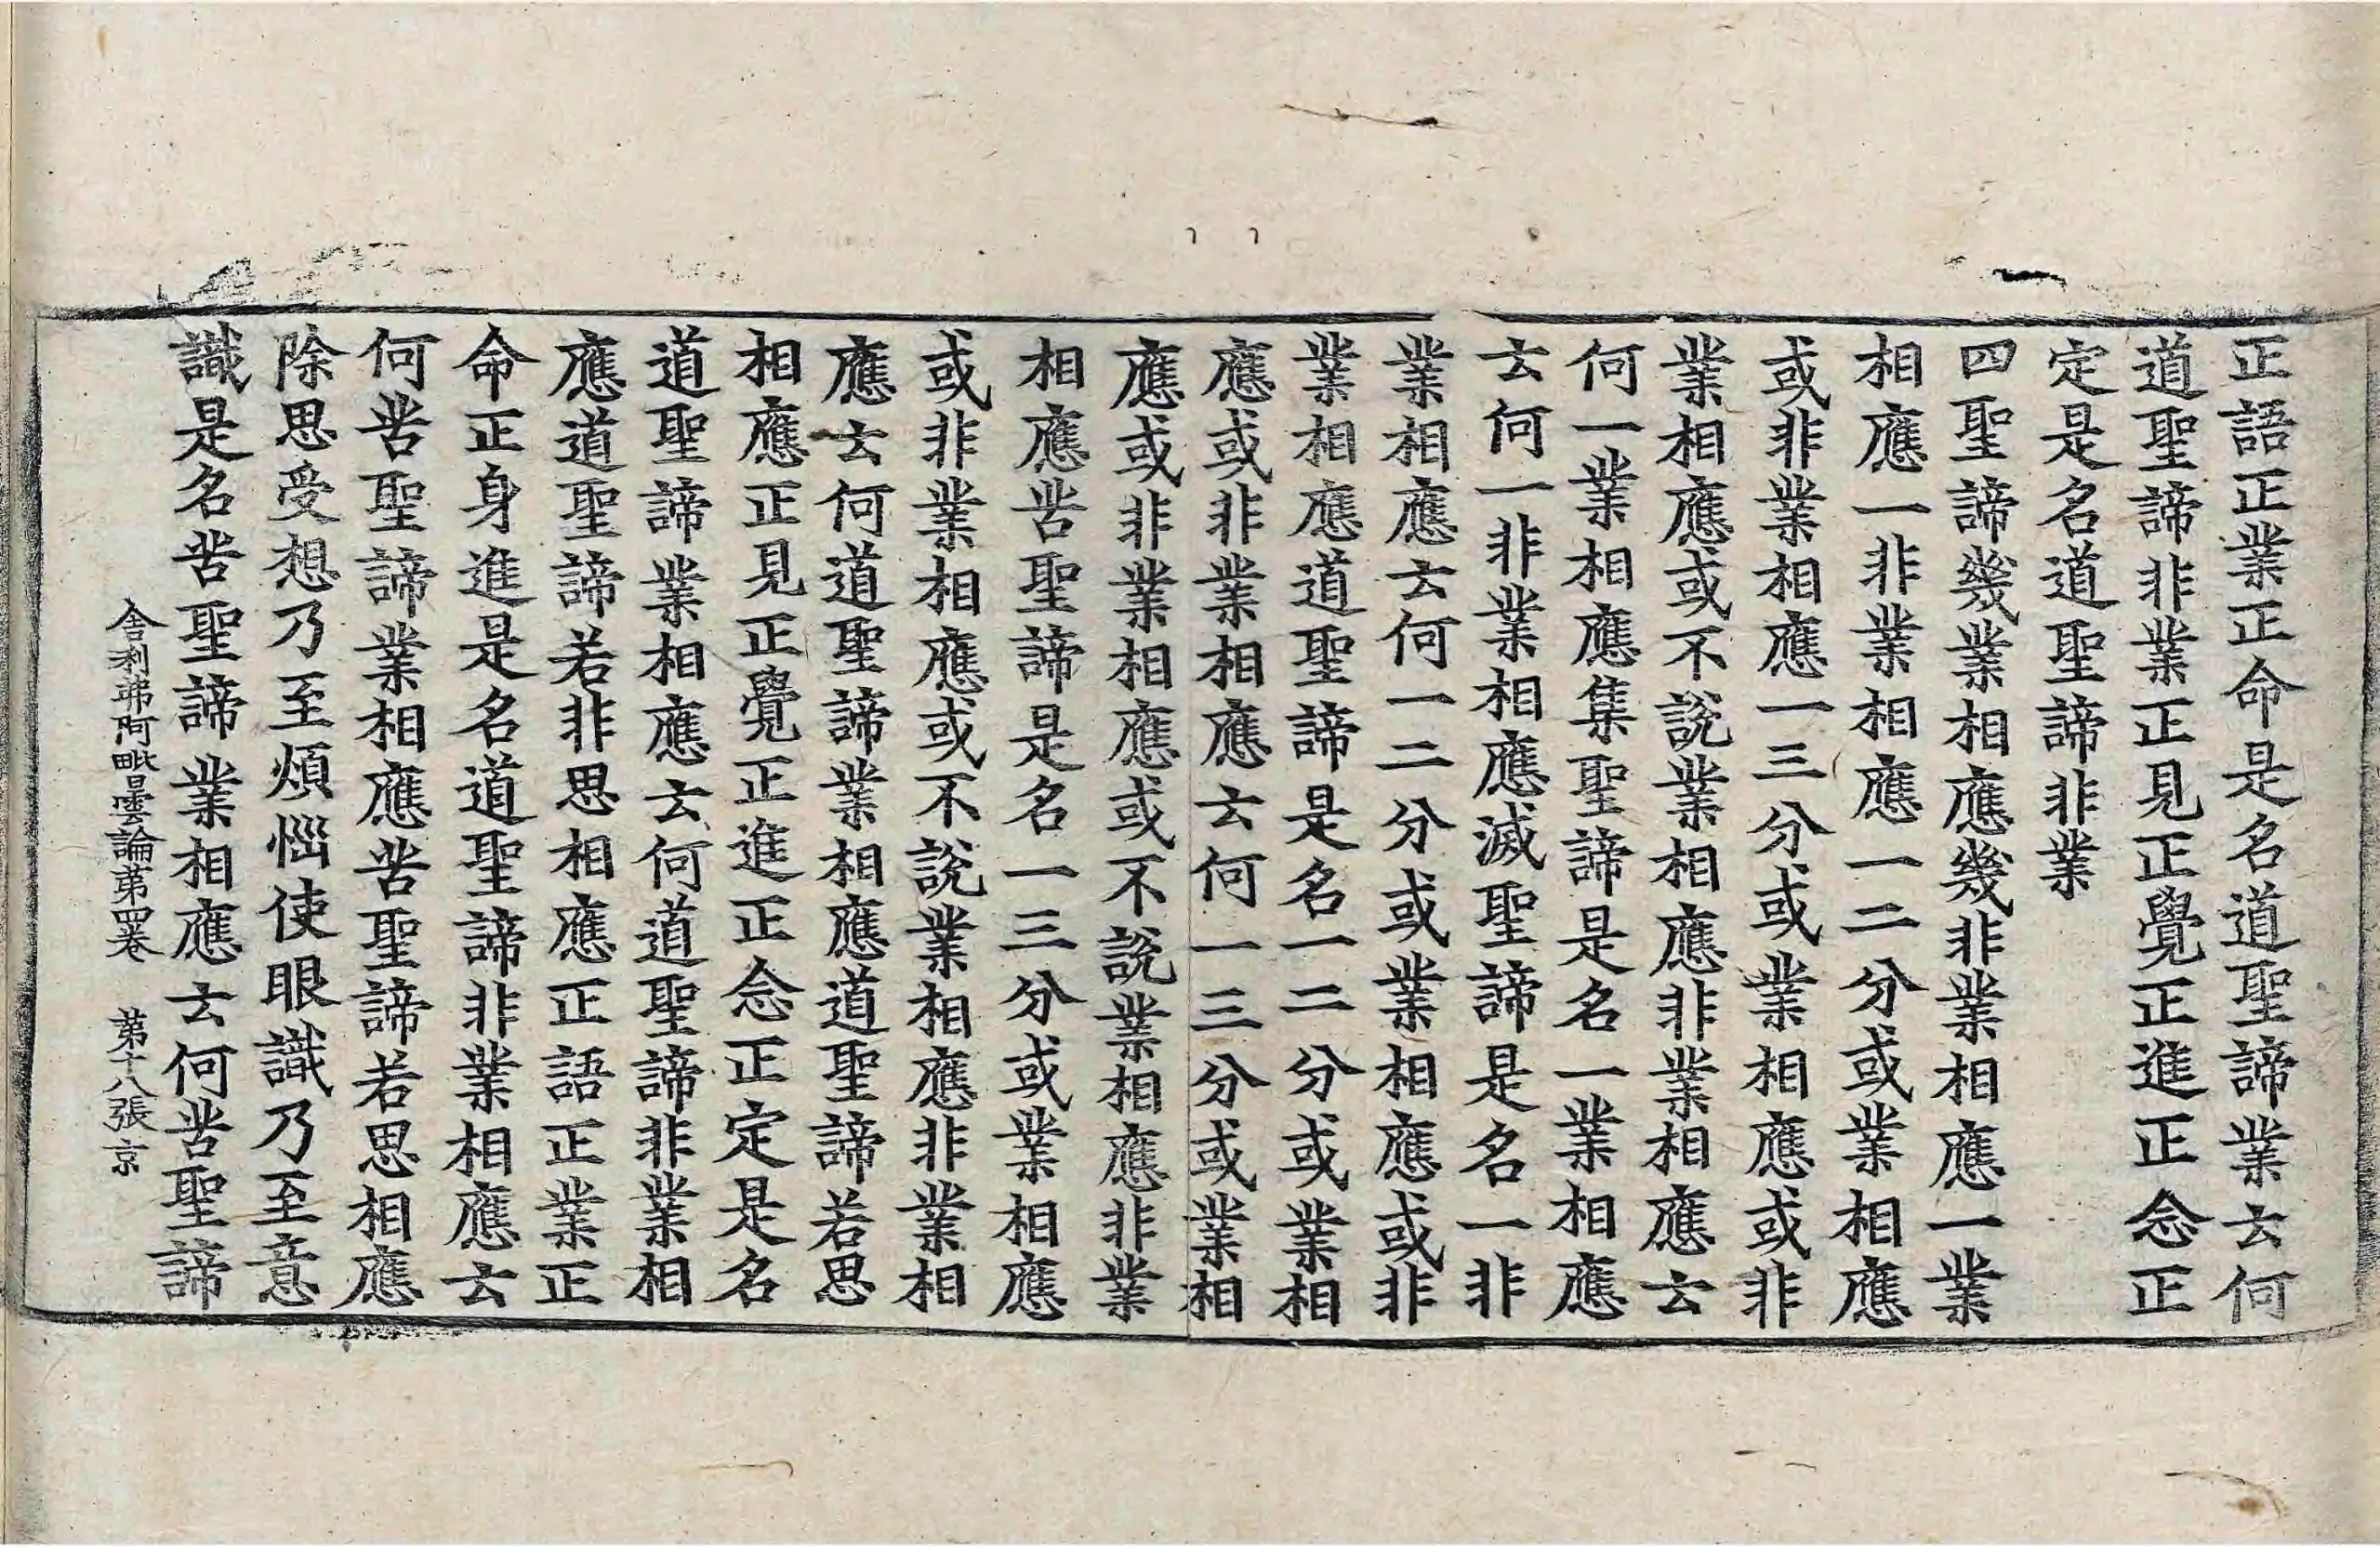 正語正業正命是名道聖諦業云何
道聖諦非業正見正覺正進正念正
定是名道聖諦非業
四聖諦幾業相應幾非業相應一業
相應一非業相應一二分或業相應
或非業相應一三分或業相應或非
業相應或不說業相應非業相應云
何一業相應集聖諦是名一業相應
云何一非業相應滅聖諦是名一非
業相應云何一二分或業相應或非
業相應道聖諦是名一二分或業相
應或非業相應云何一三分或業相
應或非業相應或不說業相應非業
相應苦聖諦是名一三分或業相應
或非業相應或不說業相應非業相
應云何道聖諦業相應道聖諦若思
相應正見正覺正進正念正定是名
道聖諦業相應云何道聖諦非業相
應道聖諦若非思相應正語正業正
命正身進是名道聖諦非業相應云
何苦聖諦業相應苦聖諦若思相應
除思受想乃至煩惱使眼識乃至意
識是名苦聖諦業相應云何苦聖諦
舍利弗阿毗曇論第四卷 第十八張 京